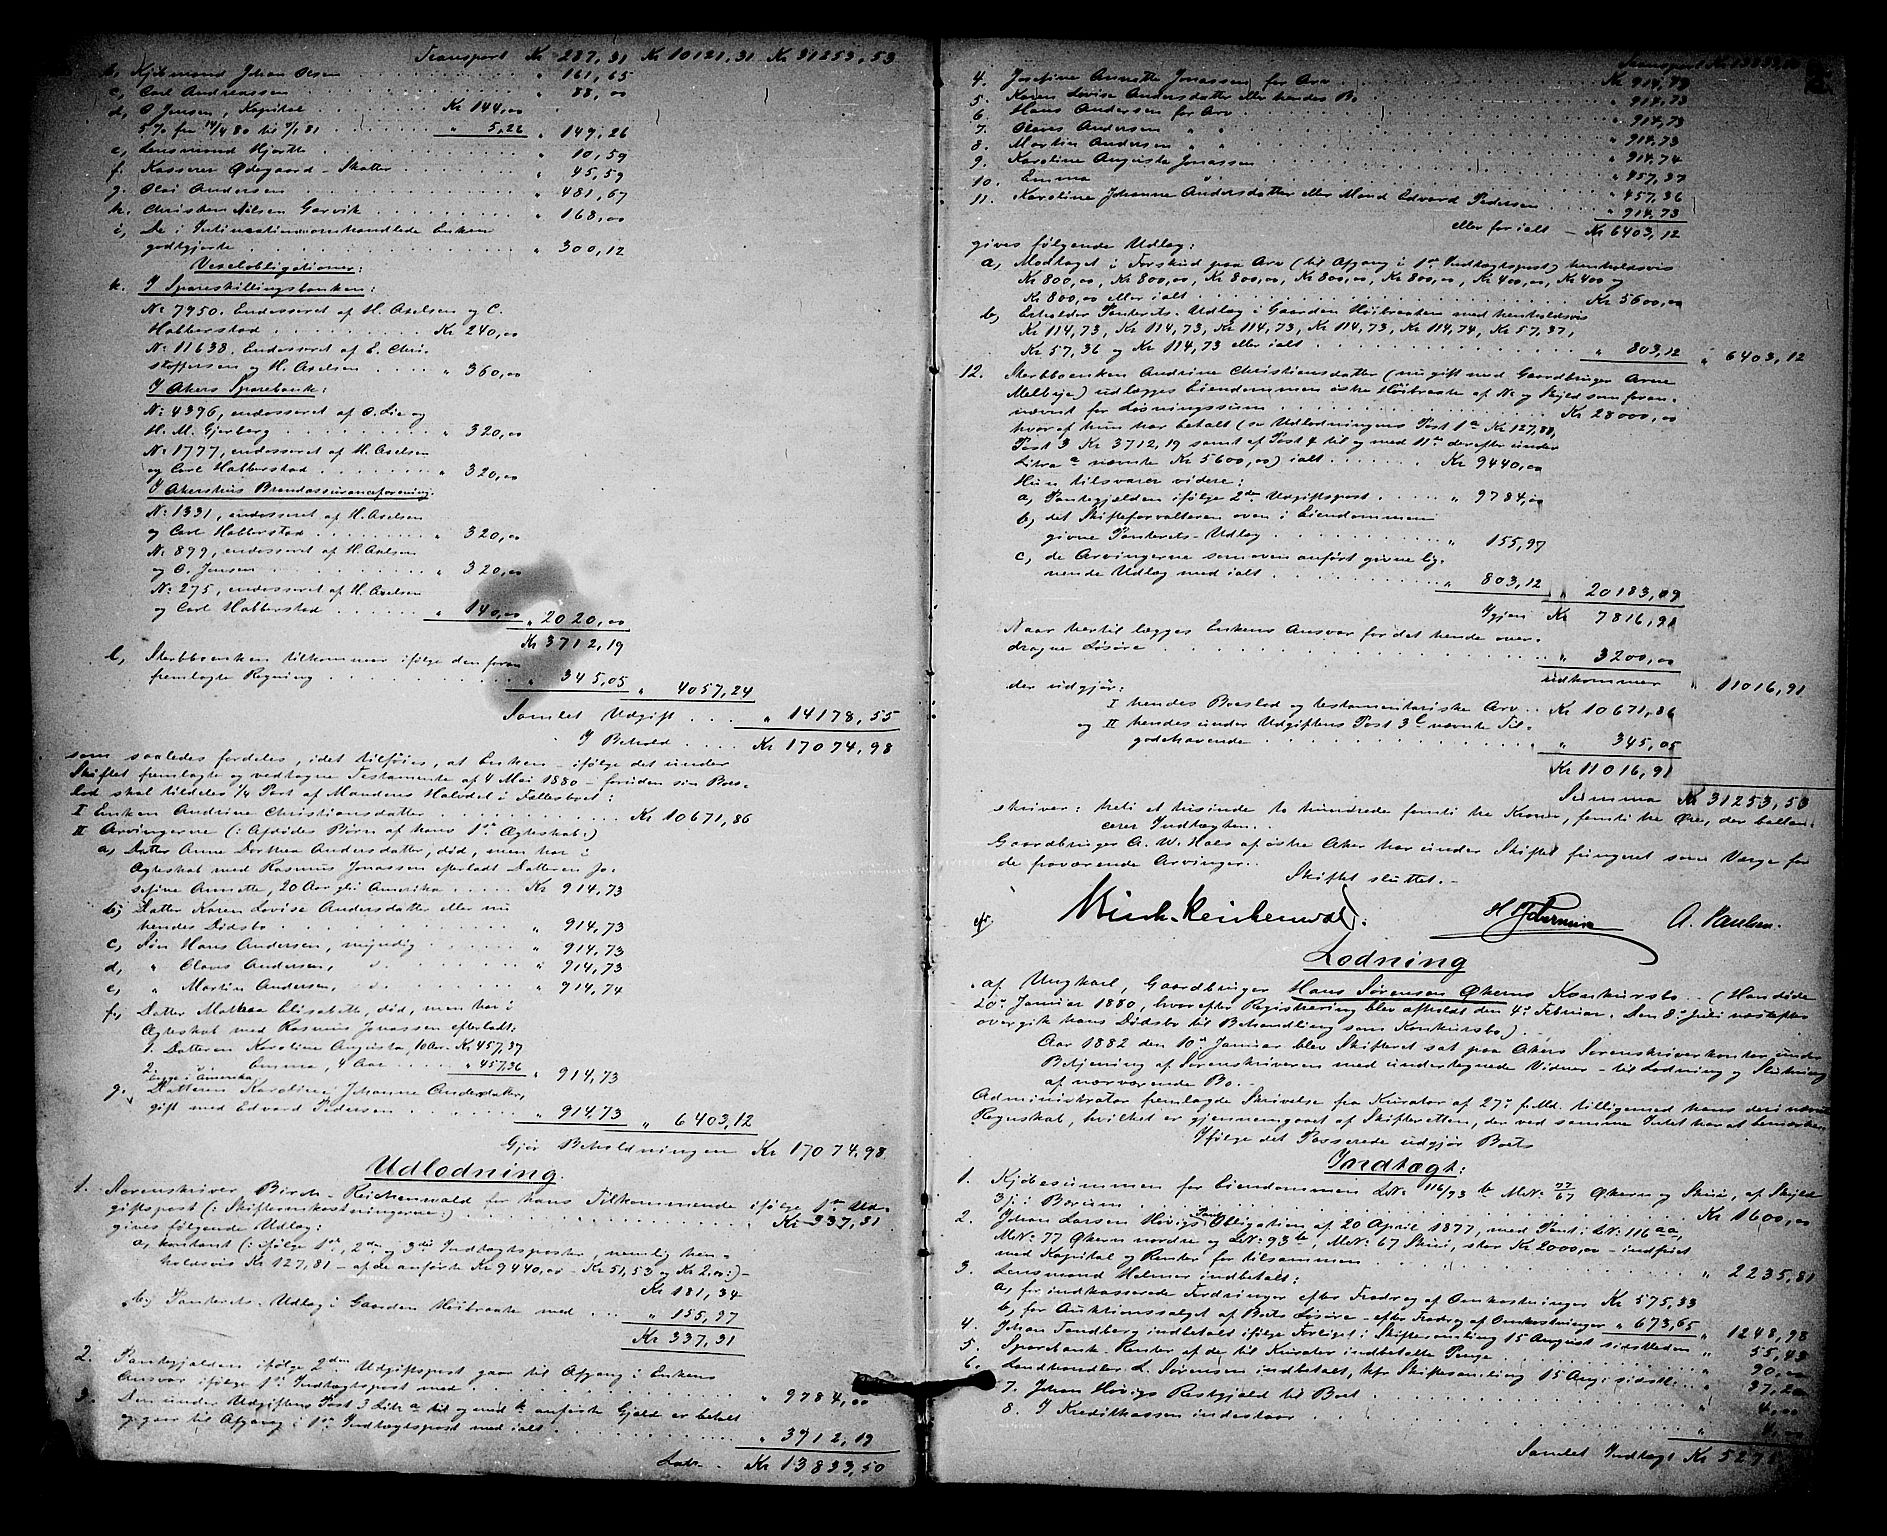 Transport Kr 287,31 Kr 10121,31 Kr 31253,53
b, Kjøbmand Johan Olsen " 161,65
c, Carl Andreassen " 88,00
d, O Jensen, Kapital Kr 144,00
5 % fra 14/4 80 til 7/1 81 " 5,26 " 149,26
e, Lensmand Hjorth " 10,59
f. Kasserer Ødegaard - Skatter " 45,59
g. Olai Andersen " 481,67
h. Christen Nilsen Garvik " 168,00
i, De i Intimationen omhandlede Enken
godtgjorte " 300,12
Vexelobligationer:
k. I Spareskillingsbanken:
No 7950. Endosseret af H. Axelsen og C.
Habberstad Kr 240,00
No 11638. Endosseret af E. Chri-
stoffersen og H. Axelsen " 360,00
I Akers Sparebank:
No 4396, endosseret af O. Lie og
H. M. Gjerberg " 320,00
No 1777, endosseret af H. Axelsen
og Carl Habberstad " 320,00
I Akershus Brandassuranceforening.
No 1331, endosseret af H. Axelsen
og Carl Habberstad " 320,00
No 899, endosseret af H. Axelsen
og O. Jensen " 320,00
No 275, endosseret af H. Axelsen
og Carl Habberstad " 140,00 " 2020,00
Kr 3712,19
l, Sterbboenken tilkommer ifølge den foran
fremlagte Regning " 345,05 " 4057,24
Samlet Udgift " 14178,55
I Behold Kr 17074,98
som saaledes fordeles, idet tilføies, at Enken - ifølge det under
Skiftet fremlagte og vedtagne Testamente af 4 Mai 1880 - foruden sin Boes-
lod skal tildeles 1/4 Part af Mandens Halvdel i Fællesboet:
I Enken Andrine Christiansdatter Kr 10671,86
II Arvingerne (: Afdødes Børn af hans 1ste Ægteskab:)
a, Datter Anne Dorthea Andersdatter, død, men har i
Ægteskab med Rasmus Jonassen efterladt Datteren Jo-
sefine Annette, 20 Aar gl i Amerika Kr 914,73
b, Datter Karen Lovise Andersdatter eller nu
hendes Dødsbo " 914,73
c, Søn Hans Andersen, myndig " 914,73
d, " Olavs Andersen, d. " 914,73
e, " Martin Andersen, d. " 914,74
f, Datter Mathea Elisabeth, død, men har i
Ægteskab med Rasmus Jonassen efterladt:
1. Datteren Karoline Augusta, 10 Aar Kr 457,37
2. " Emma, 4 Aar " 457,36 " 914,73
begge i Amerika
g. Datteren Karoline Johanne Andersdatter,
gift med Edvard Pedersen " 914,73 " 6403,12
Gjør Beholdningen Kr 17074,98
Udlodning
1. Sorenskriver Birch-Reichenwald for hans Tilkommende ifølge 1ste Ud-
giftspost (: Skifteomkostningerne:) Kr 337,31
gives følgende Udlæg:
a, kontant (: ifølge 1ste, 2den og 3die Indtægtsposter, nemlig hen-
holdsvis Kr 127,81 - af de anførte Kr 9440,00 - Kr 51,53 og Kr 2,00:) -
Kr 181,34
b, Panterets-Udlæg i Gaarden Høibraaten med " 155,97
Kr 337,31
2. Pantegjælden ifølge 2den Udgiftspost gaar til Afgang i Enkens
Ansvar ifølge 1ste Indtægtspost med " 9784,00
3. Den under Udgiftens Post 3 Litr a til og med k anførte Gjæld er betalt
og gaar til Afgang i 1ste Indtægtspost med ialt " 3712,19
Lat. Kr 13833,50
Transport Kr 13833,50
4. Josefine Annette Jonassen for Arv Kr 914,73
5. Karen Lovise Andersdatter eller hendes Bo " 914,73
6. Hans Andersen for Arv " 914,73
7. Olaves Andersen " " " 914,73
8. Martin Andersen " " " 914,74
9. Karoline Augusta Jonassen " 457,37
10. Emma " " 457,36
11. Karoline Johanne Andersdatter eller Mand Edvard Pedersen " 914,73
eller for ialt - Kr 6403,12
gives følgende Udlæg:
a, Modtaget i Forskud paa Arv (til Afgang i 1ste Indtægtspost) henholdsvis
Kr 800,00, Kr 800,00, Kr 800,00, Kr 800,00, Kr 800,00, Kr 400,00, Kr 400 og
Kr 800,00 eller ialt Kr 5600,00
b, Erholder Panterets-Udlæg i Gaarden Høibraaten med henholdsvis
Kr 114,73, Kr 114,73, Kr 114,73, Kr 114,73, Kr 114,74, Kr 57,37,
Kr 57,36 og Kr 114,73 eller ialt " 803,12 " 6403,12
12. Sterbboenken Andrine Christiansdatter (nu gift med Gaardbruger Arne
Melbye) udlægges Eiendommen østre Høibraate af No og Skyld som foran-
nævnt for Løsningssum Kr 28000,00
hvoraf hun har betalt (se Udlodningens Post 1a Kr 127,81,
Post 3 Kr 3712,19 samt af Post 4 til og med 11te derefter under
Litra a nævnte Kr 5600,00) ialt Kr 9440,00
Hun tilsvarer videre:
a, Pantegjælden ifølge 2den Udgiftspost " 9784,00
b, det Skifteforvalteren oven i Eiendommen
givne Panterets-Udlæg " 155,97
c, de Arvingerne som oven anført givne lig-
nende Udlæg med ialt " 803,12 " 20183,09
Igjen Kr 7816,91
Naar hertil lægges Enkens Ansvar for det hende over-
dragne Løsøre " 3200,00
udkommer " 11016,91
der udgjør:
I hendes Boeslod og testamentariske Arv Kr 10671,86
og II hendes under Udgiftens Post 3 l nævnte Til-
godehavende " 345,05
Kr 11016,91
Summa Kr 31253,53
skriver: treti et tusinde to hundrede femti tre Kroner, femti tre Øre, der ballan-
cerer Indtægten.
Gaardbruger A. W. Hals af østre Aker har under Skiftet fungeret som Værge for
de fraværende Arvinger.
Skiftet sluttet. -
Birch-Reichenwald. A. Paulsen.
Lodning
af Ungkarl, Gaardbruger Hans Sørensen Økerns Konkursbo. (Han døde
20de Januar 1880, hvorefter Registrering blev afholdt den 4de Februar. Den 8de Juli næstefter
overgik hans Dødsbo til Behandling som Konkursbo).
Aar 1882 den 10de Januar blev Skifteret sat paa Akers Sorenskriverkontor under
Betjening af Sorenskriveren med undertegnede Vidner - til Lodning og Slutning
af nærværende Bo. -
Administrator fremlagde Skrivelse fra Kurator af 27de f. Md. tilligemed hans deri nævnte
Regnskab, hvilket er gjennemgaaet af Skifteretten, der ved samme Intet har at bemærke.
Ifølge det Passerede udgjør Boets
Indtægt:
1. Kjøbesummen for Eiendommen LNo 116/93 MNo 77/67 Økern og Skui, af Skyld
3 i Bærum Kr 1600,00
2. Johan Larsen Høvigs Pant Obligation af 20 April 1877, med Pant i LNo 116 aa,
MNo 77 Økern nordre og LNo 93 b, MNo 67 Skui, stor Kr 2000,00 - indfriet
med Kapital og Renter for tilsammen " 2235,81
3. Lensmand Helmer indbetalt:
a, for indkasserede Fordringer efter Fradrag af Omkostninger Kr 575,33
b, for Auktionssalget af Boets Løsøre - efter Fradrag af Omkostninger " 673,65 " 1248,98
4. Johan Tandberg indbetalt ifølge Forliget i Skiftesamling 15 August sidstleden " 55,43
5. Sparebank-Renter af de til Kurator indbetalte Penge " 90,00
6. Landhandler L. Sørensen indbetalt, kfr Skiftesamling 15 Aug. sidstl. " 37,20
7. Johan Høvigs Restgjæld til Boet " 4,00
8. I Kreditkassen indestaar "
Samlet Indtægt Kr